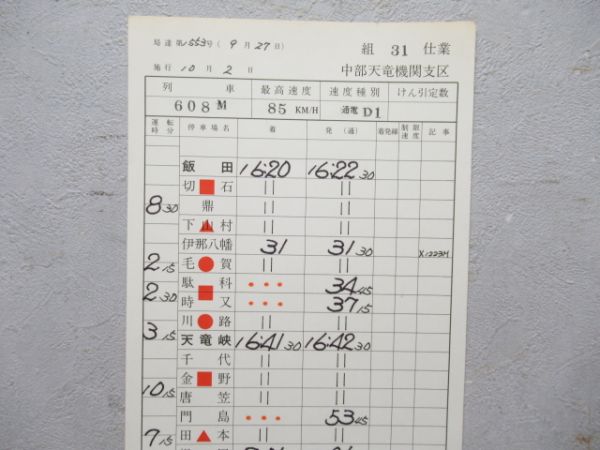 局達第1553号(9月27日)
組 31 仕業
施行10月2日
中部天竜機関支区
列車 最高速度 速度種別 けん引定数
608M 85 KM/H 通電 D1
運転時分 停車場名 着 発(通) 着発線 制限速度 記事
飯田 16:20 16:22 30
切石 || ||
8 30 鼎 || ||
下山村 || ||
伊那八幡 31 31 30 X1223M
2 15 毛賀 || ||
駄科 ・・・ 34 45
2 30 時又 ・・・ 37 15
川路 || ||
3 15 天竜峡 16:41 30 16:42 30
千代 || ||
金野 || ||
10 15 唐笠 || ||
門島 ・・・ 53 45
7 15 田本 || ||